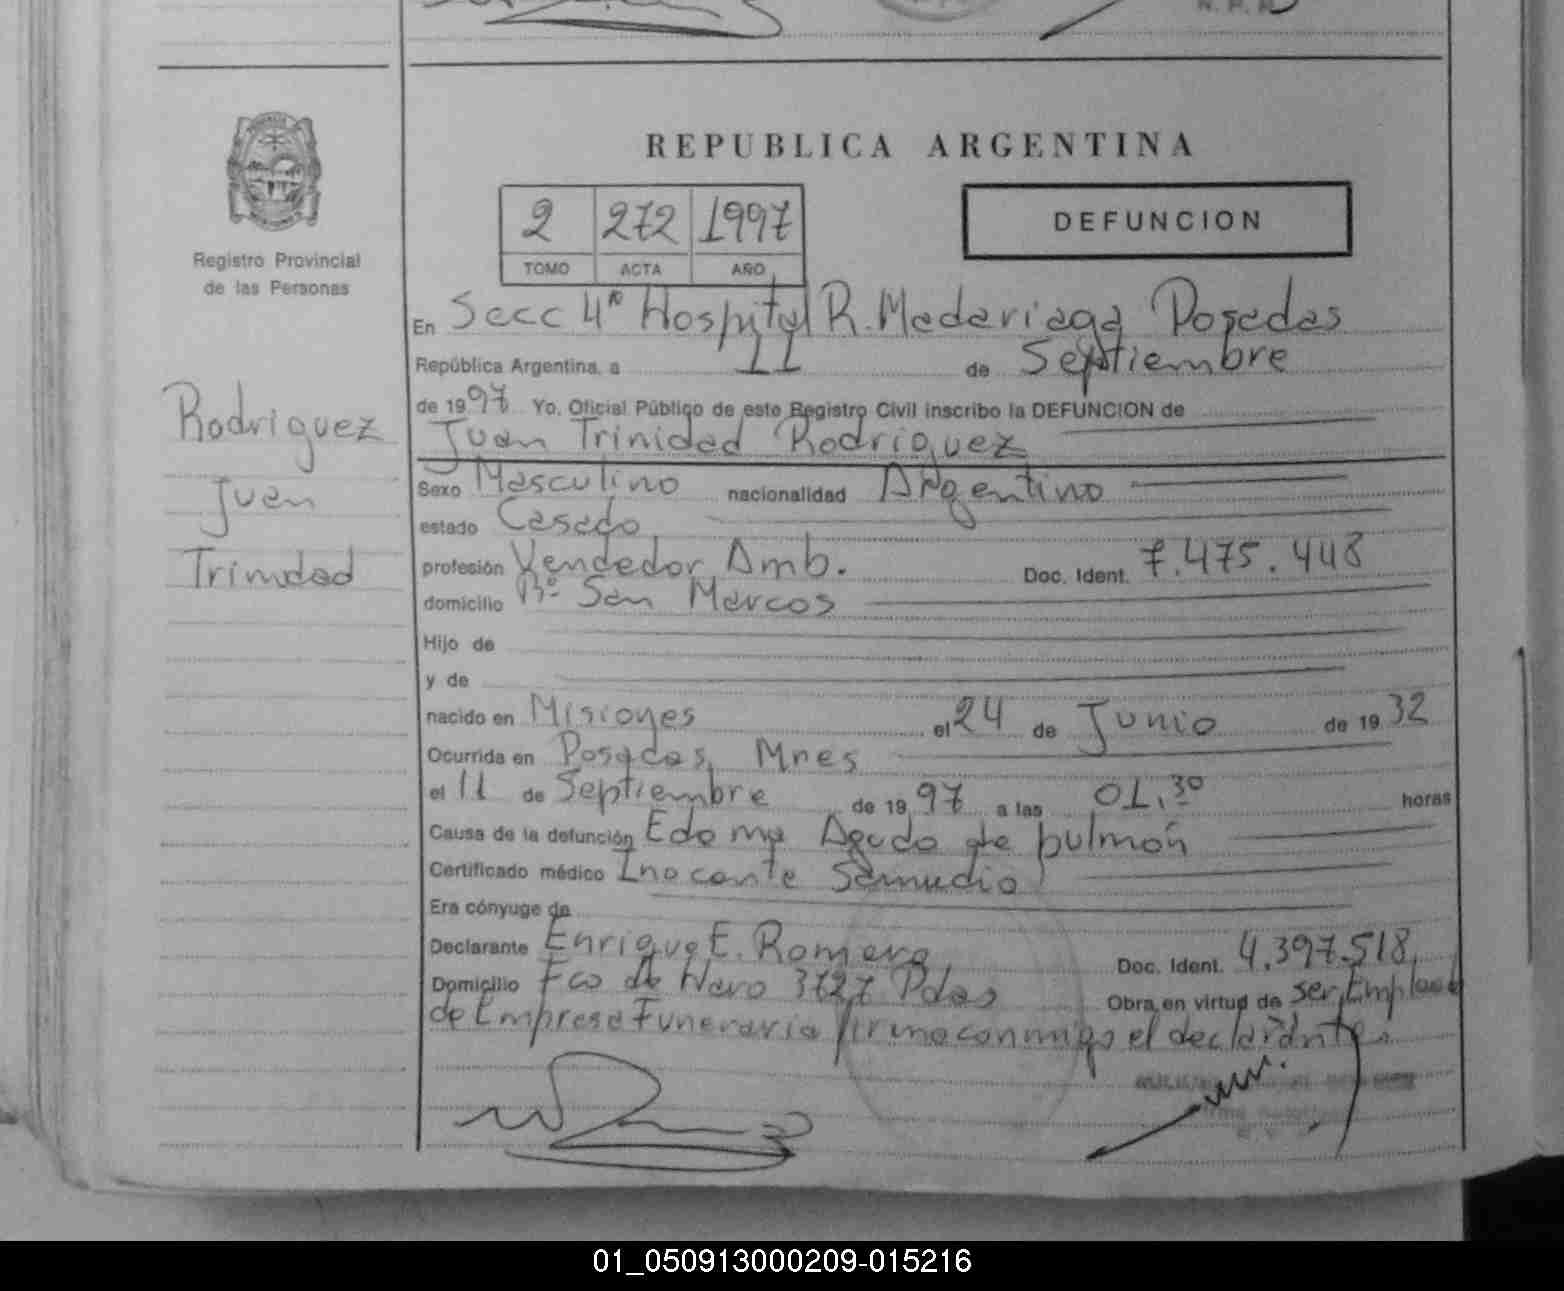 N. P. P.
REPUBLICA ARGENTINA
2 272 1997
TOMO ACTA AÑO
DEFUNCION
Registro Provincial
de las Personas
Rodriguez
Juan
Trinidad
En Secc 4ª Hospital R. Madariaga Posadas
República Argentina, a 11 de Septiembre
de 1997 Yo, Oficial Público de este Registro Civil inscribo la DEFUNCION de
Juan Trinidad Rodriguez
Sexo Masculino nacionalidad Argentino
estado Casado
profesión Vendedor Amb. Doc. Ident. 7.475.448
domicilio Bº San Marcos
Hijo de
y de
nacido en Misiones el 24 de Junio de 1932
Ocurrida en Posadas, Mnes
el 11 de Septiembre de 1997 a las 01.30 horas
Causa de la defunción Edema Agudo de pulmón
Certificado médico Inocente Samudio
Era cónyuge de
Declarante Enrique E. Romero Doc. Ident. 4.397.518
Domicilio Fco de Haro 3727 Pdas Obra en virtud de ser Empleado
de Empresa Funeraria firma conmigo el declarante.
01_050913000209-015216